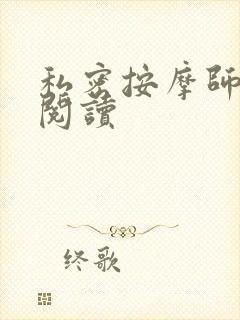 私密按摩師
閱讀
终歌